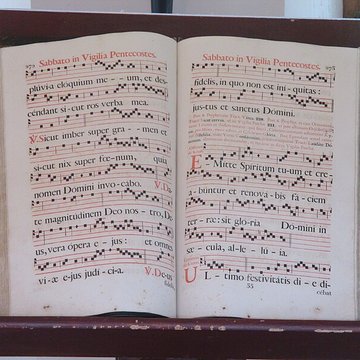 272 Sabbato in Vigilia Pentecostes.
pluvi-a eloquium me--um, et des-
cendant si-cut ros verba mea.
℣. Sicut imber super gra--men et
si-cut nix super fœ-num, quia
nomen Domini invo-cabo. ℣. Da-
te magnitudinem Deo nos-tro, De-
us, vera opera e-jus: et omnes
vi-æ e-jus judi-ci-a. ℣. De-us
fidelis,
Sabbato in Vigilia Pentecostes.
fidelis, in quo non est ini-quitas:
jus-tus et sanctus Domini.
E-Mitte Spiritum tu-um et cre-
a-buntur et renova-bis fá-ciem
ter-ræ: sit glo-ria Do-mini in
sæ-cula, al-le-lú-ia.
UL-timo festivitatis di-e di-
55
cébat